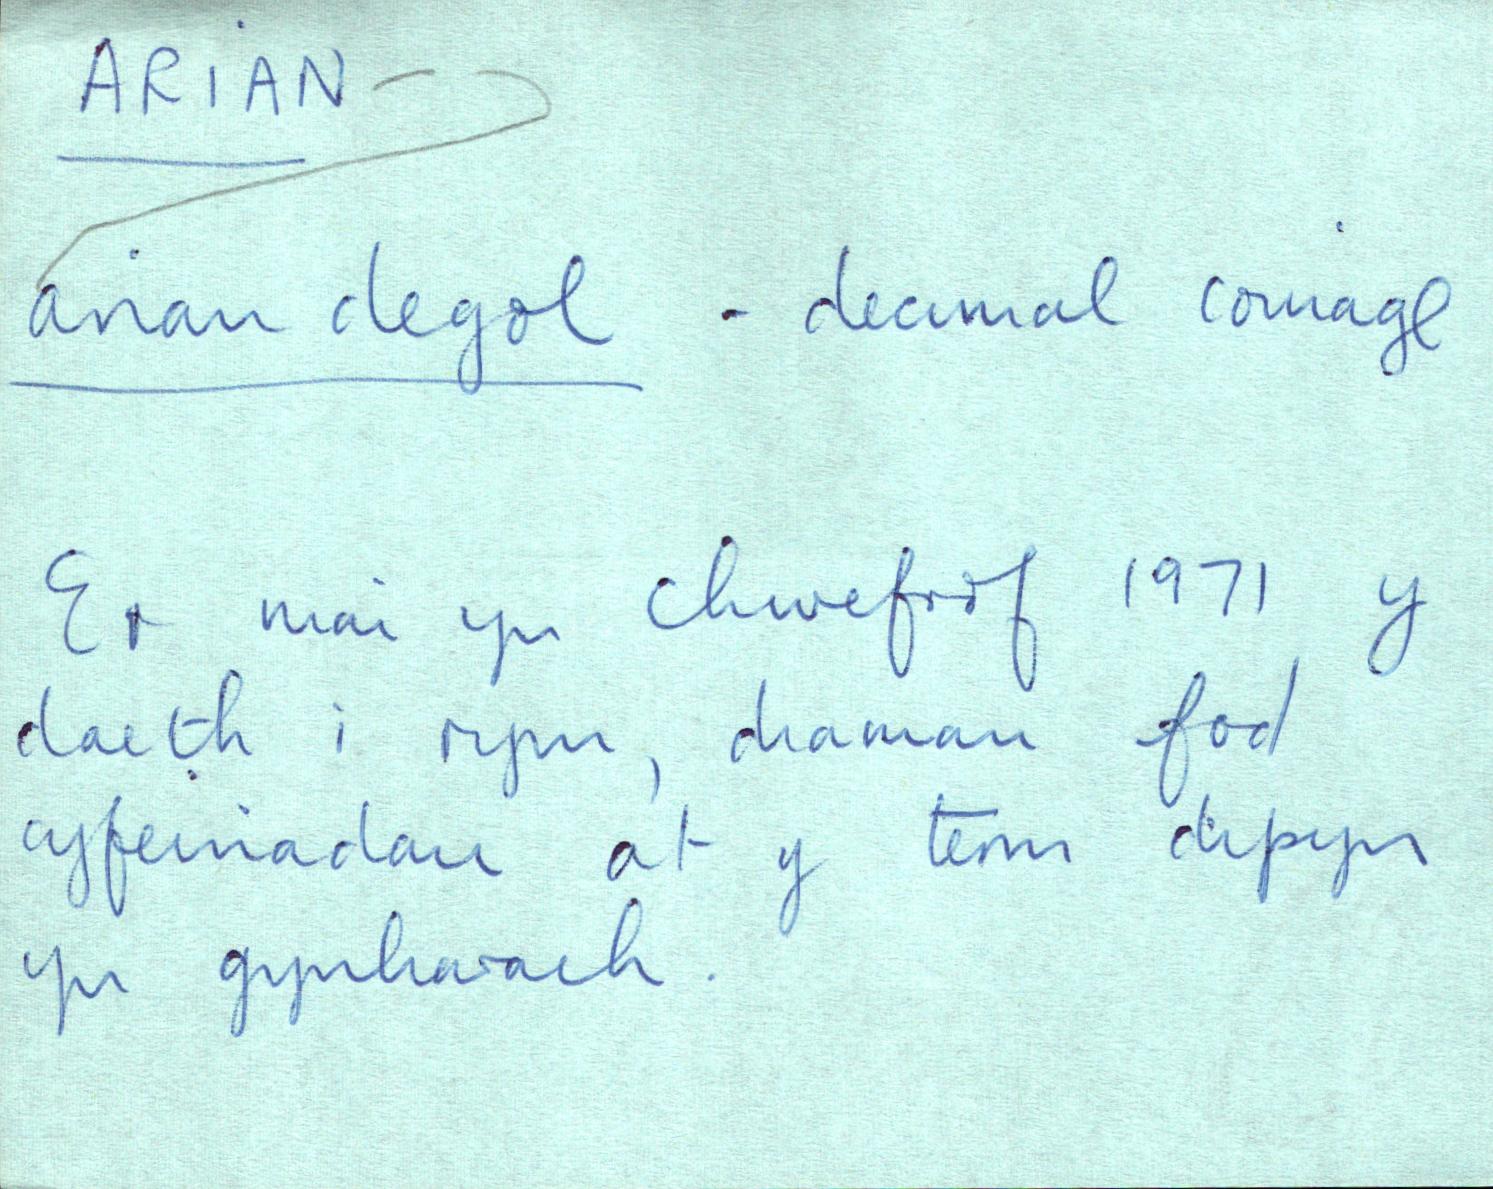 ARIAN
arian degol - decimal coinage
Er mai yn Chwefrof 1971 y
daeth i rym, diaman fod
cyfeiriadau at y term dipyn
yn gynharach.